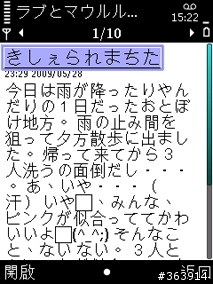 ラブとマウルル…
15:22
1/10
きしぇられまちた
23:29 2009/05/28
今日は雨が降ったりやん
だりの１日だったおとぼ
け地方。雨の止み間を
狙って夕方散歩に出まし
た。帰って来てから３
人洗うの面倒だし・・・
。あ、いや・・・（
汗）いや□、みんな、
ピンクが似合っててかわ
いいよ□(^^;)そんなこ
と、ないない。３人と
開啟
返回
#363914